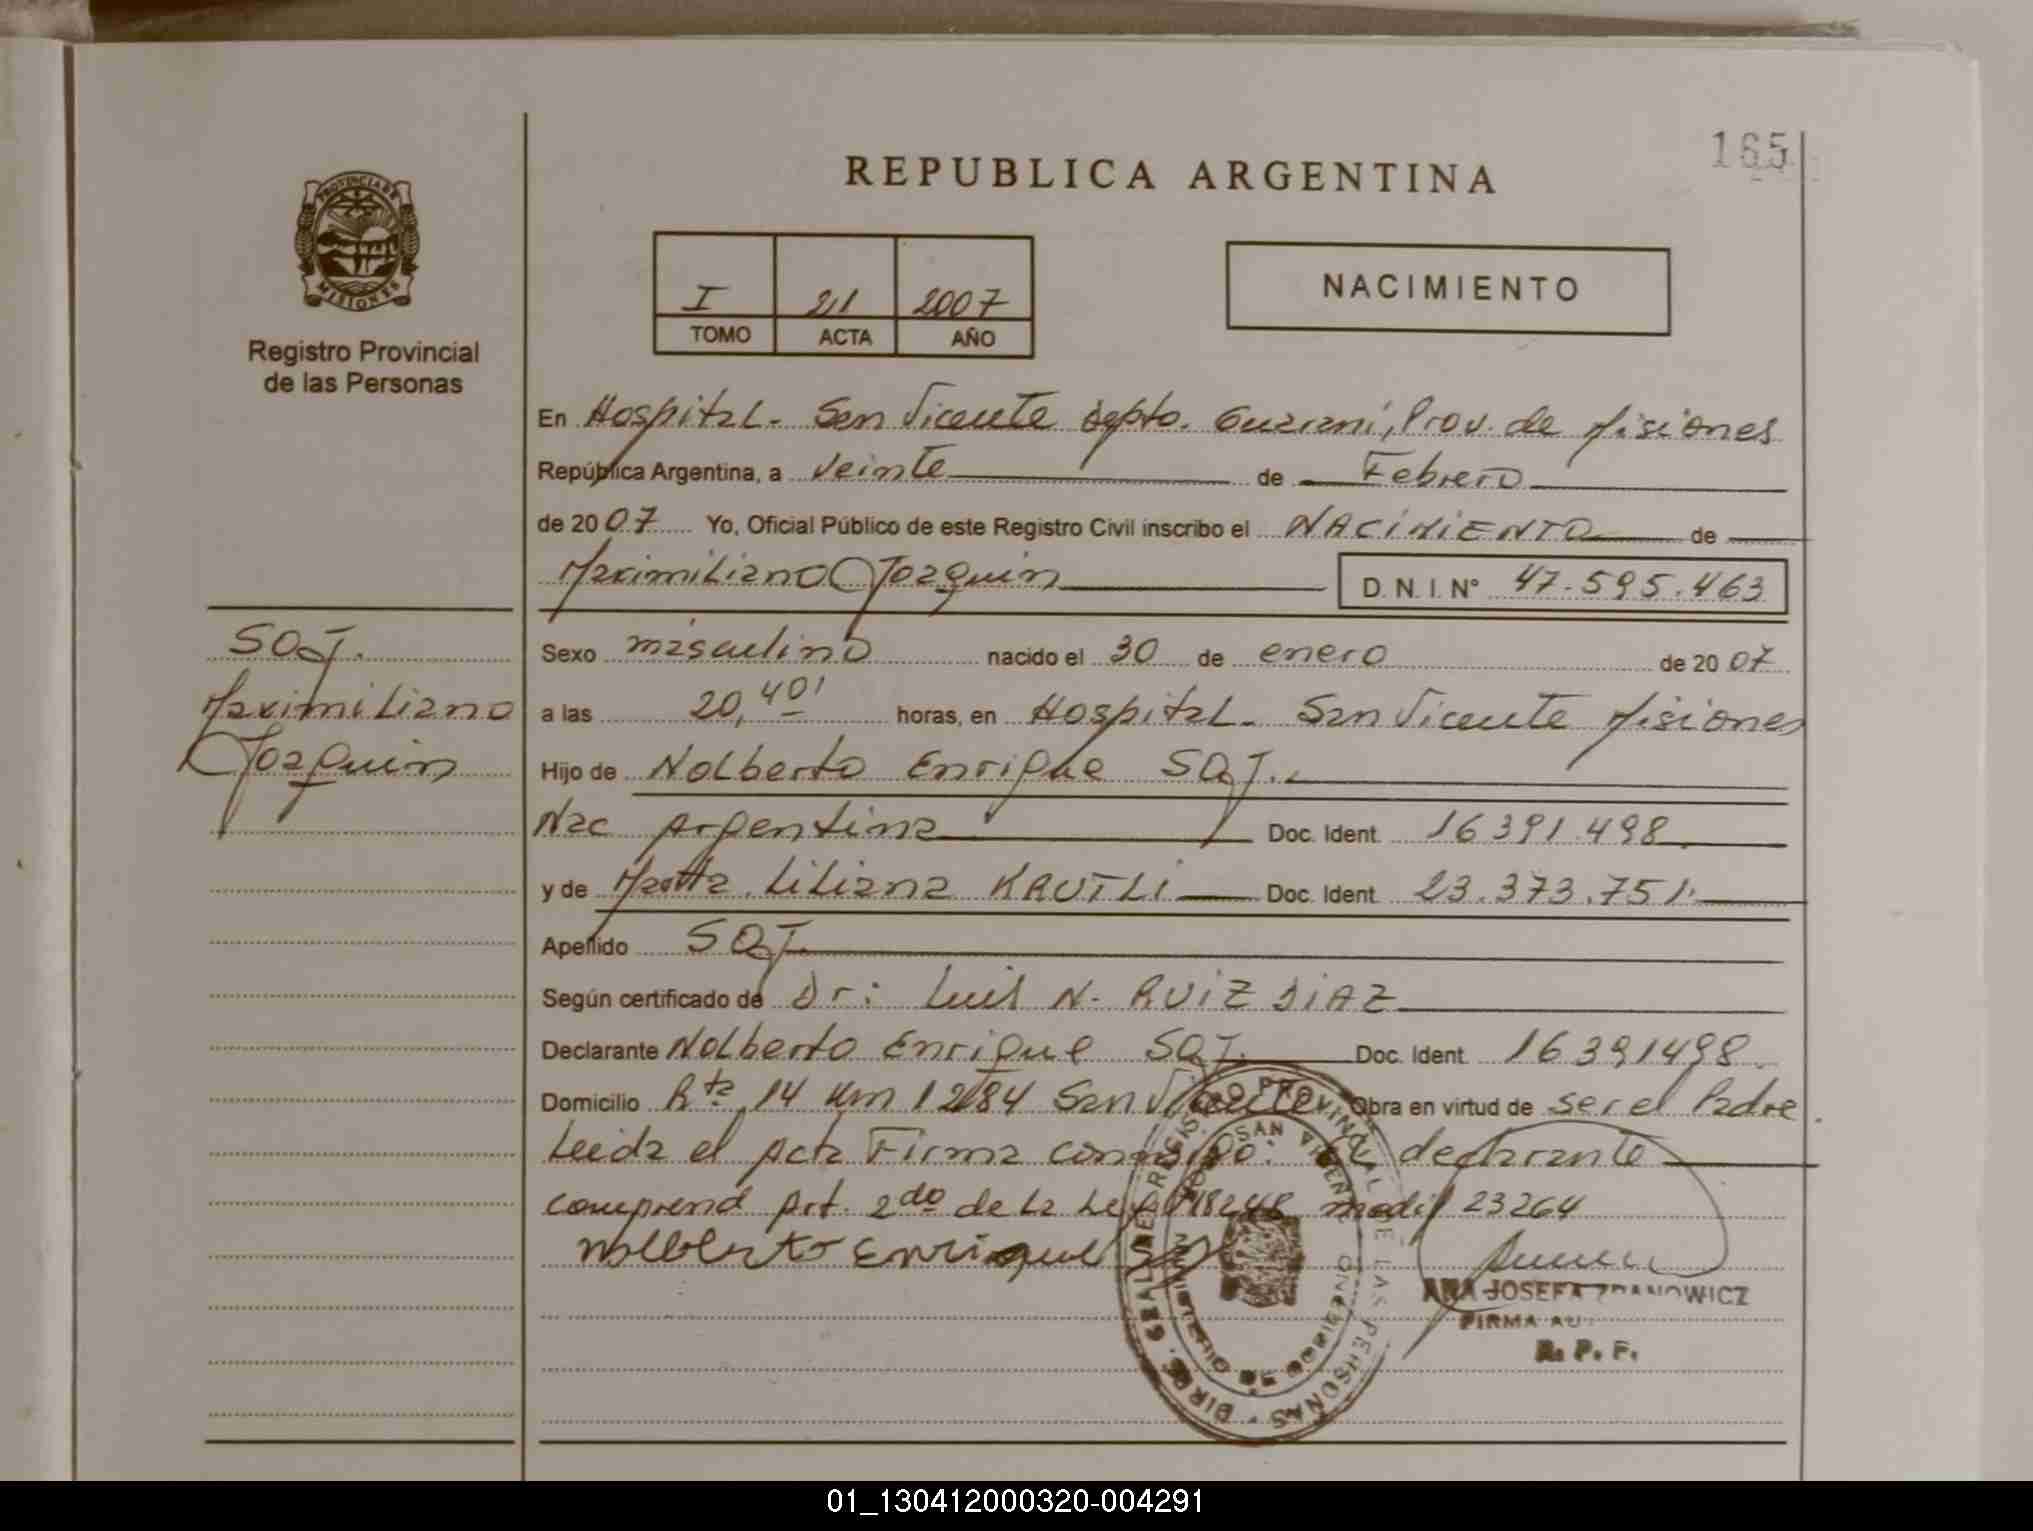 165
REPUBLICA ARGENTINA
PROVINCIA DE
MISIONES
Registro Provincial
de las Personas
I 21 2007
TOMO ACTA AÑO
NACIMIENTO
En Hospital - San Vicente depto. Guaraní, Prov. de Misiones
República Argentina, a veinte de Febrero
de 2007 Yo, Oficial Público de este Registro Civil inscribo el NACIMIENTO de
Maximiliano Joaquin D.N.I. N° 47.595.463
Sexo masculino nacido el 30 de enero de 2007
a las 20,40' horas, en Hospital - San Vicente Misiones
Hijo de Nolberto Enrique
Nac Argentina Doc. Ident. 16391.498
y de Marta Liliana KRUTLI Doc. Ident. 23.373.751
Apellido
Según certificado de Dr: Luis N. RUIZ DIAZ
Declarante Nolberto Enrique Doc. Ident. 16391498
Domicilio Rta 14 Km 1284 San Vicente Obra en virtud de ser el Padre
Leida el Acta Firma conmigo: El declarante
comprend Art. 2do de la Ley 18248 modif 23264
Nolberto Enrique
Maximiliano
Joaquin
DIRC. GRAL. DEL REGISTRO PROVINCIAL DE LAS PERSONAS
SAN VICENTE
ANA JOSEFA ZDANOWICZ
FIRMA AU
R. P. F.
01_130412000320-004291